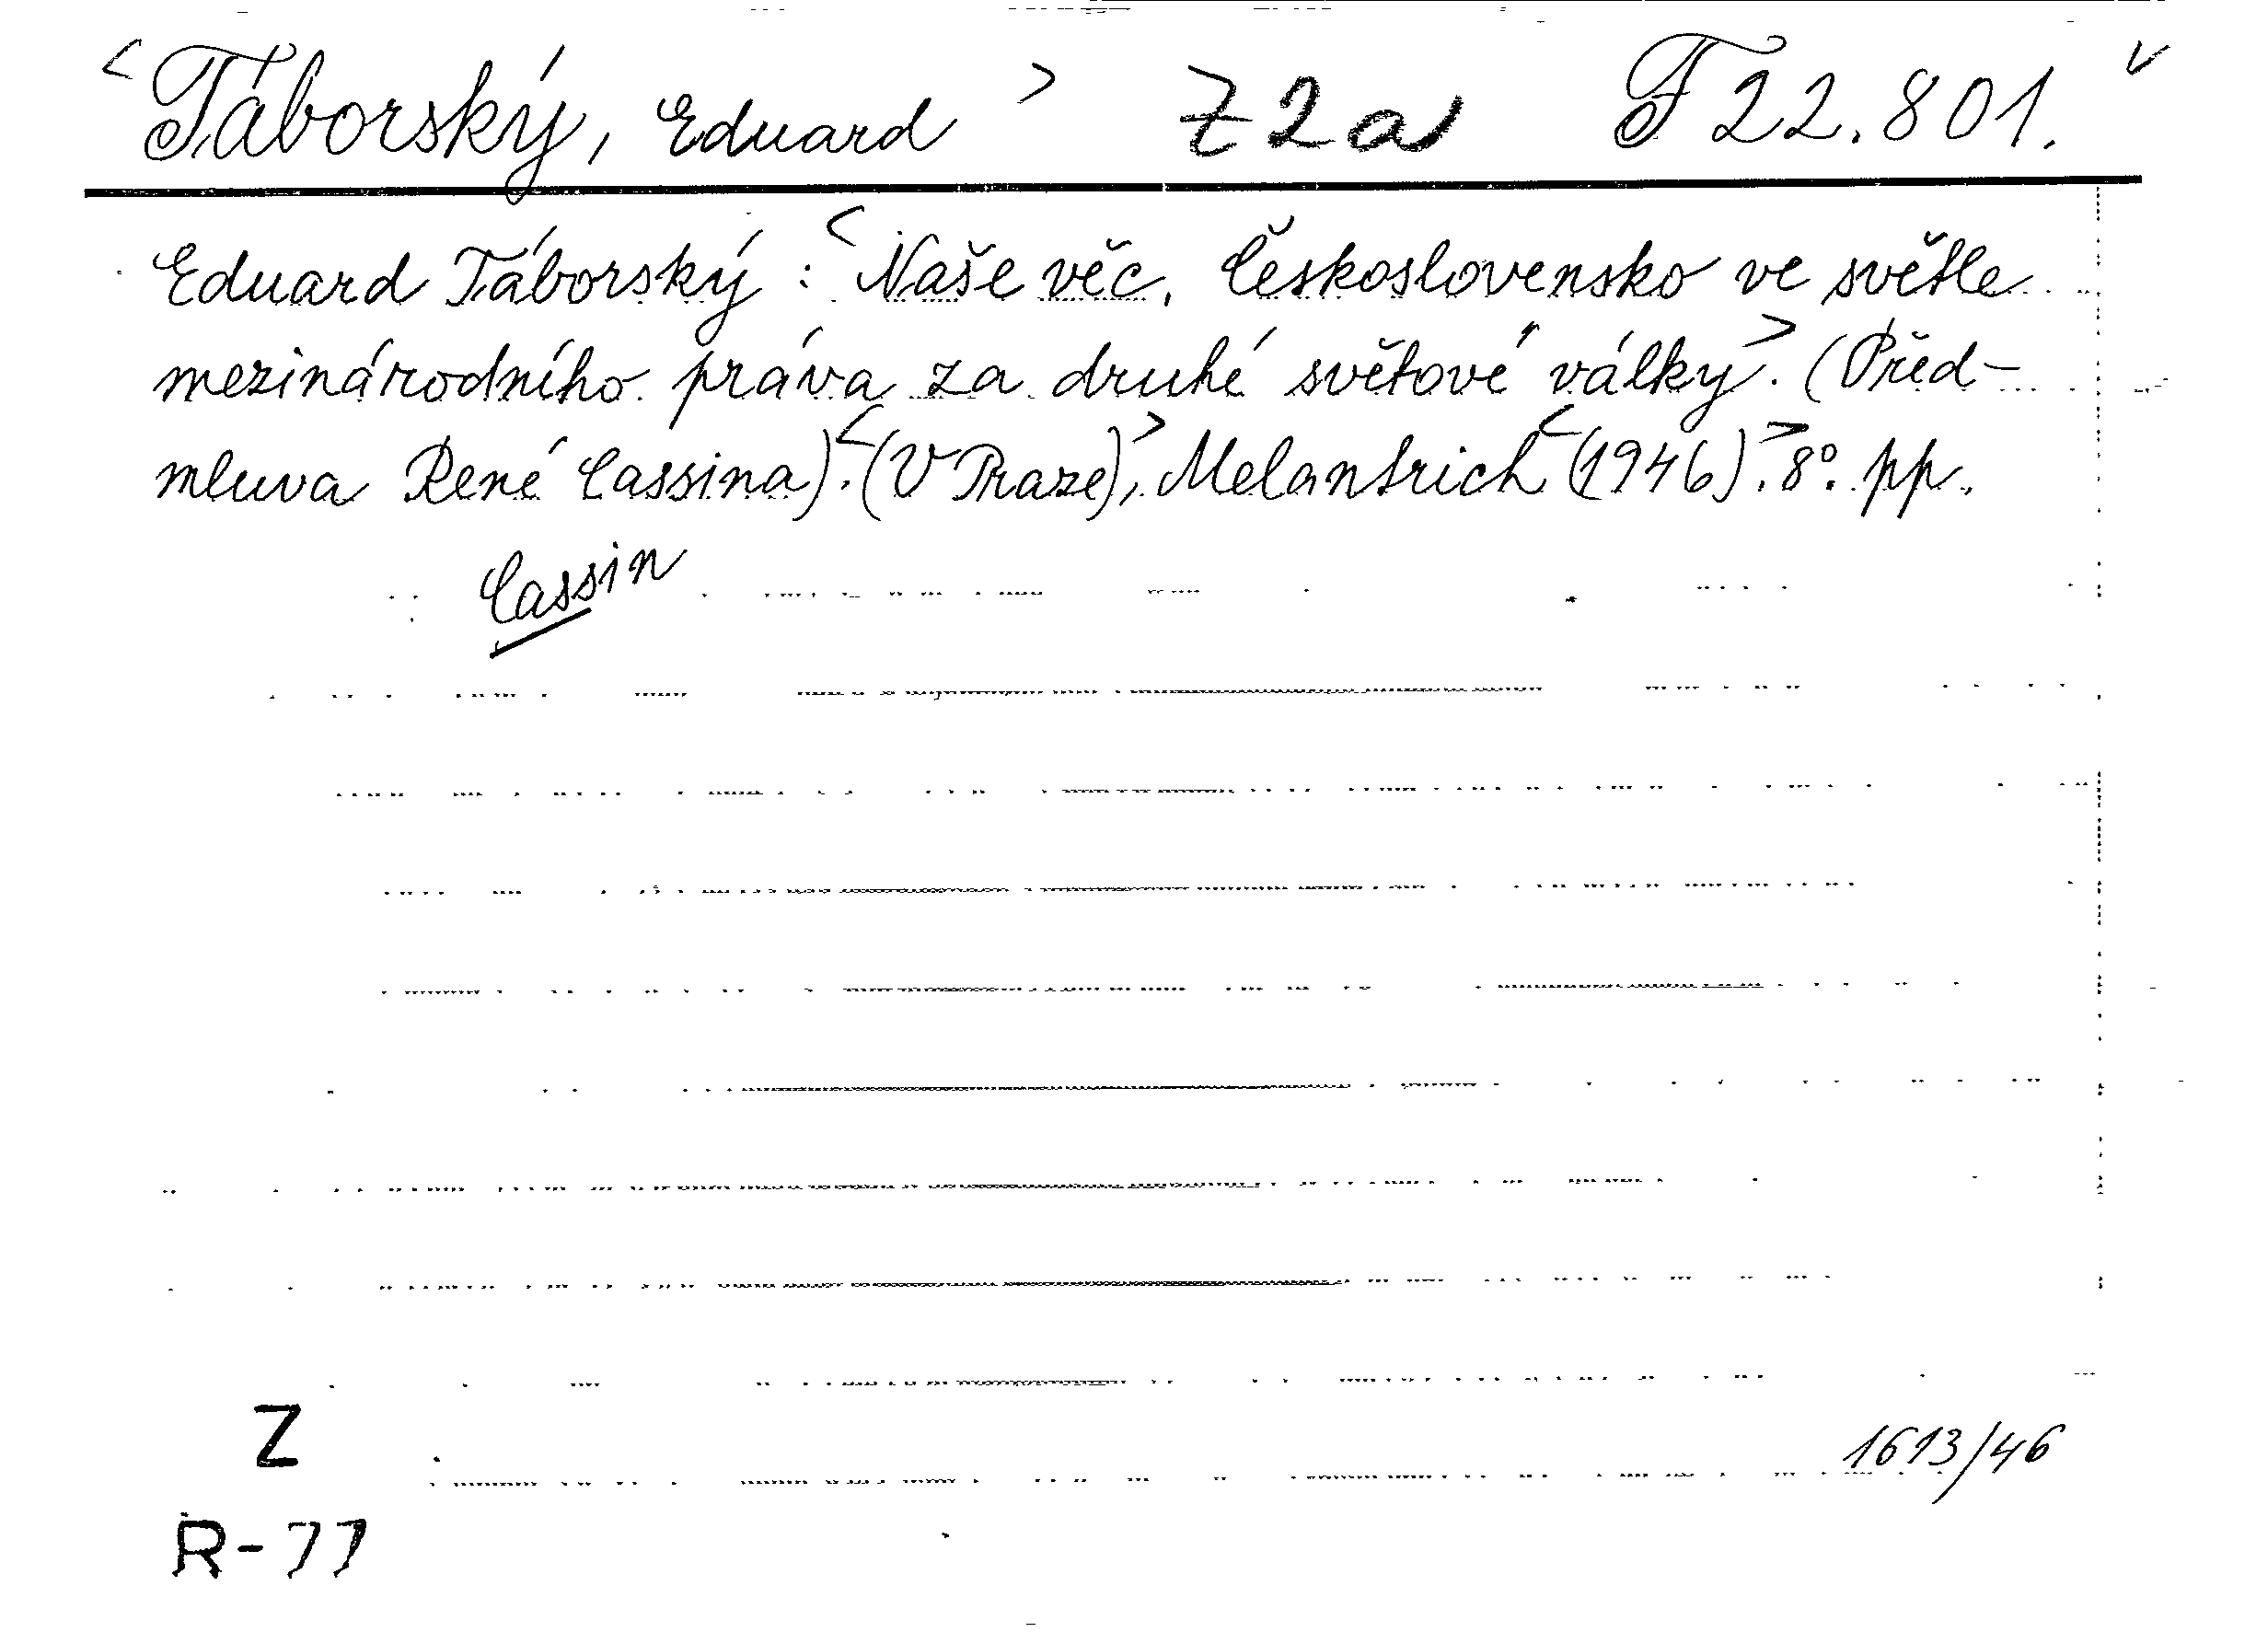 <Táborský, Eduard> Z2a F 22.801. v
Eduard Táborský: <Naše věc. Československo ve světle
mezinárodního práva za druhé světové války>. (Před-
mluva René Cassina).<(V Praze),> Melantrich <(1946).> 8°. pp.
Cassin
Z
1613/46
R-77